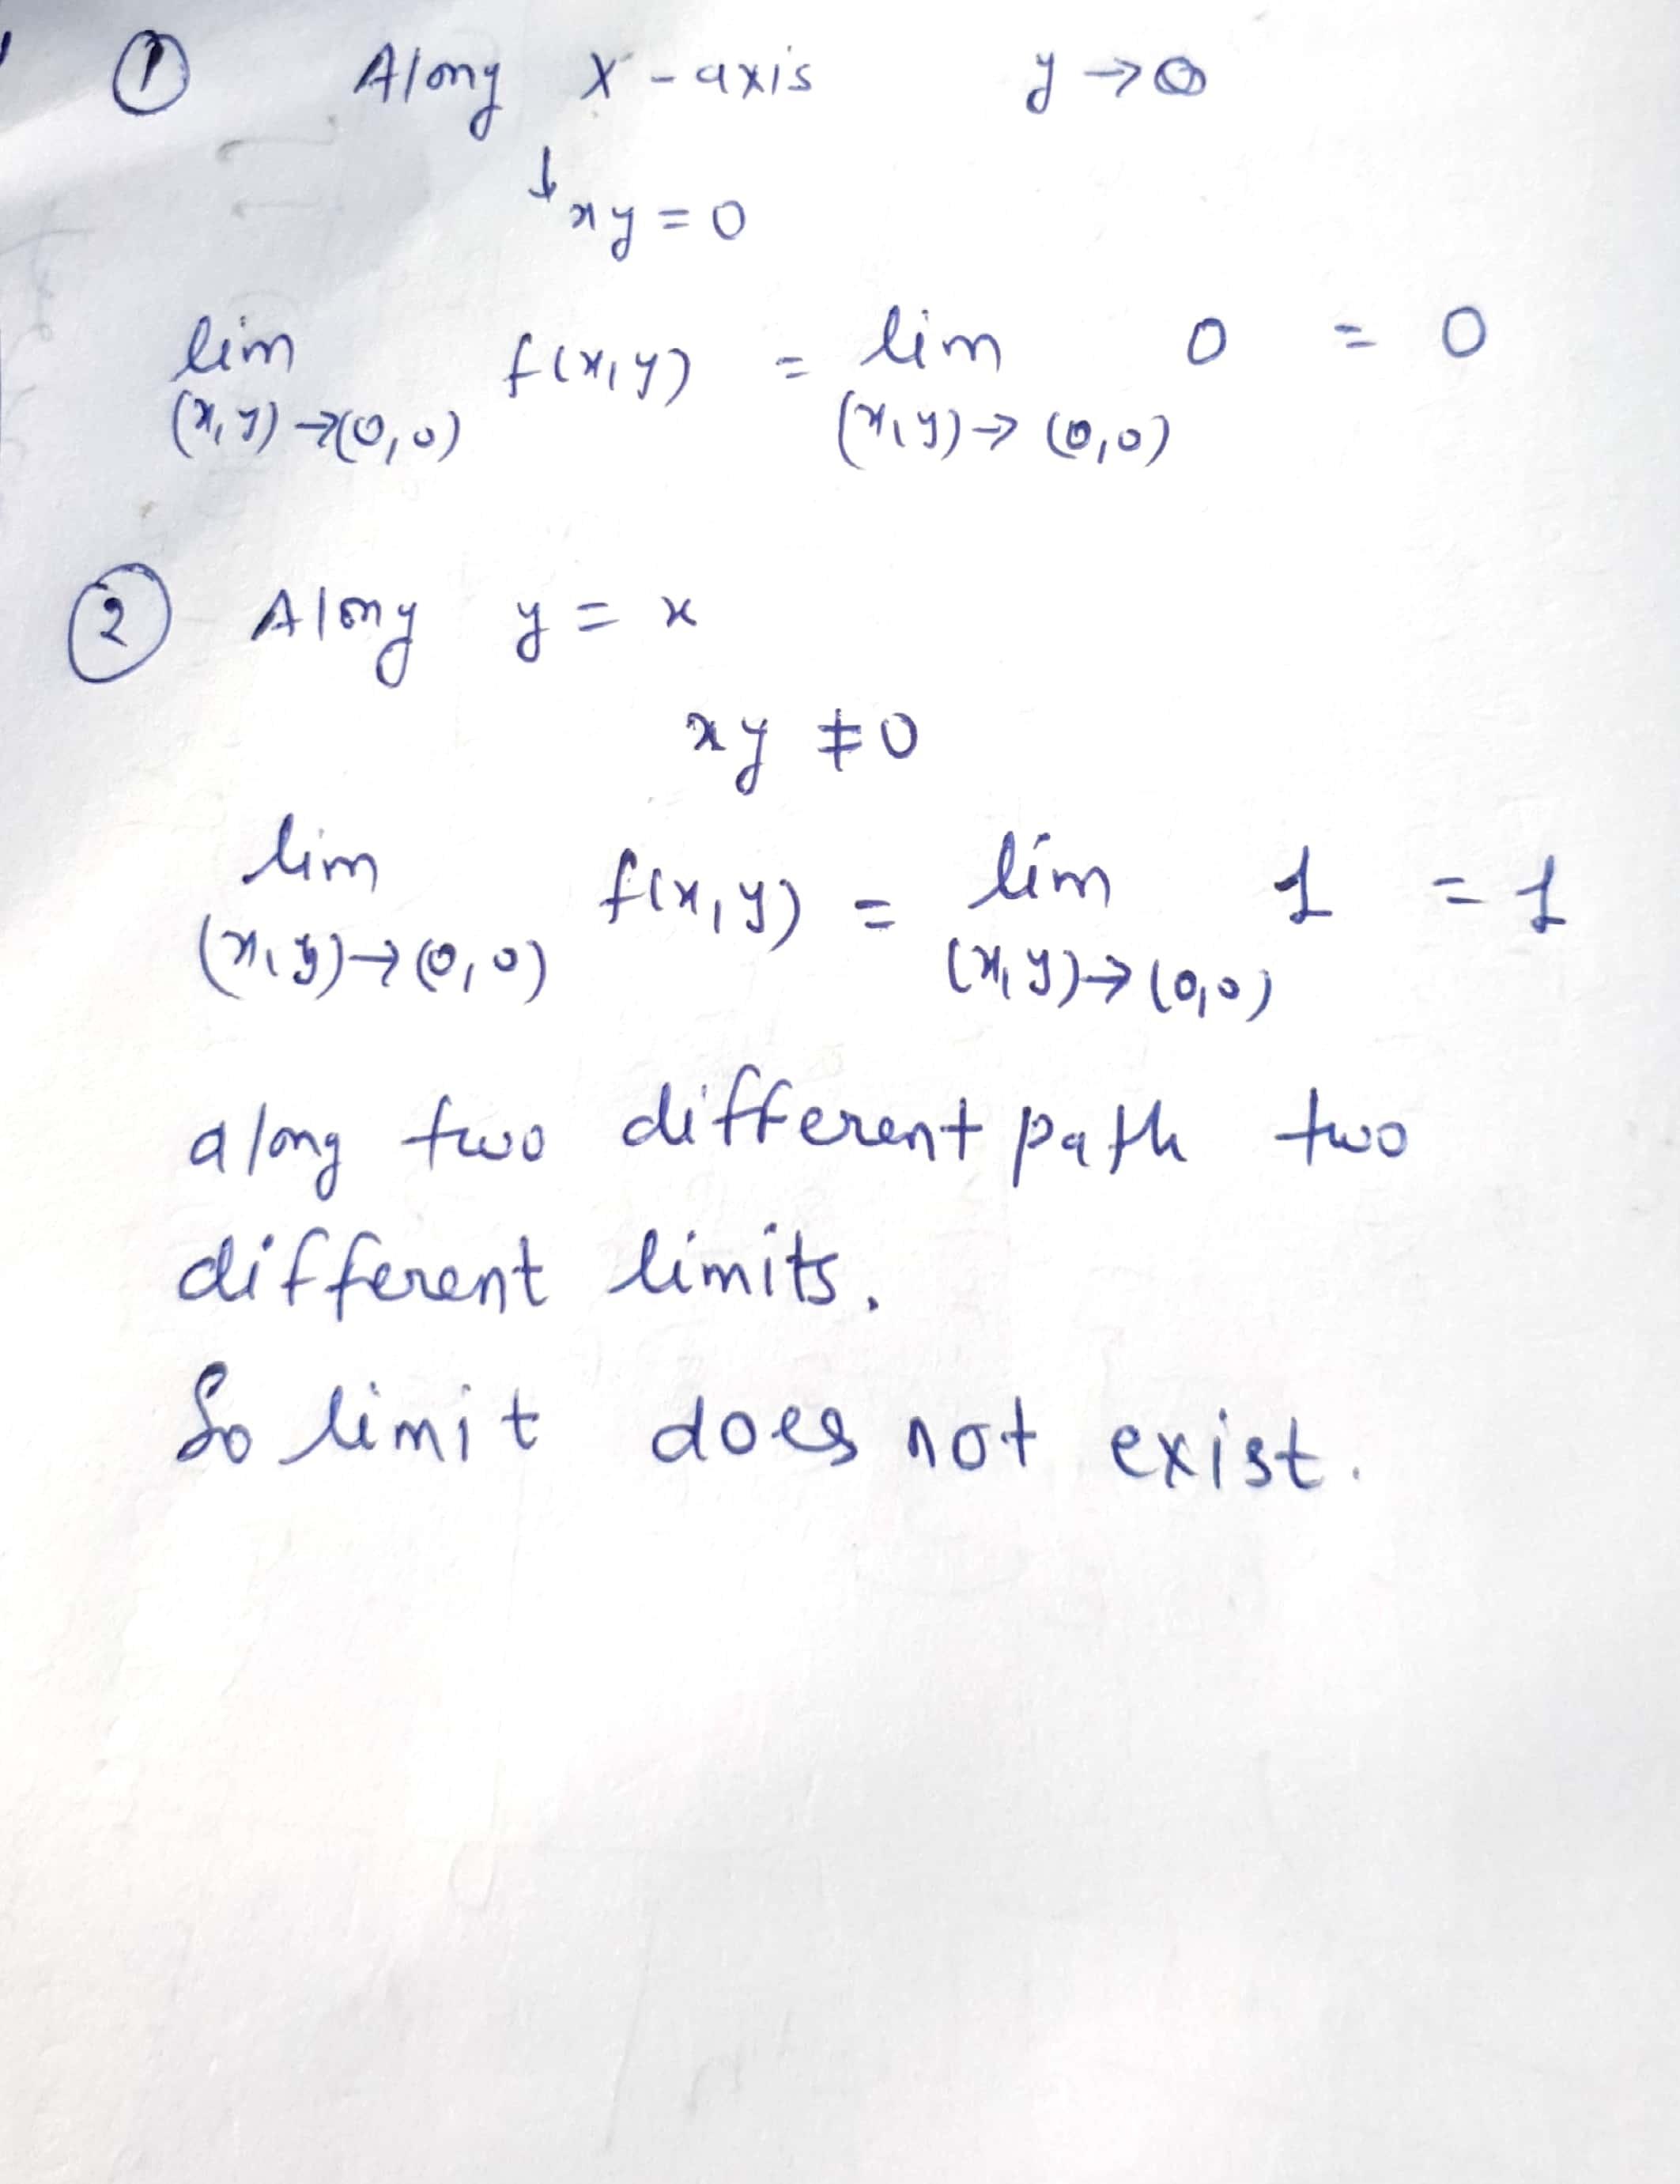 ① Along x-axis y → 0
↓ xy = 0
lim f(x,y) = lim 0 = 0
(x,y)→(0,0) (x,y)→(0,0)
② Along y = x
xy ≠ 0
lim f(x,y) = lim 1 = 1
(x,y)→(0,0) (x,y)→(0,0)
along two different path two
different limits.
So limit does not exist.